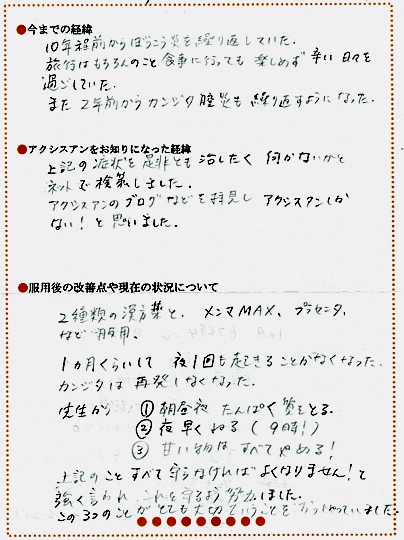 ●今までの経緯
10年程前からぼうこう炎を繰り返していた.
旅行はもちろんのこと食事に行っても 楽しめず 辛い 日々を
過ごしていた.
また 2年前から カンジタ 膣炎も 繰り返すようになった.
●アクシスアンをお知りになった経緯
上記の 症状を 是非とも 治したく 何かないかと
ネットで 検索しました.
アクシスアンの ブログ などを 拝見し アクシスアンしか
ない! と 思いました.
●服用後の改善点や現在の状況について
2種類の漢方薬と. メンマMAX、プラセンタ、
など 服用.
1ヵ月くらいして 夜1回も起きることがなくなった.
カンジタは 再発しなくなった.
先生から ①朝昼夜 たんぱく質をとる.
②夜早くねる (9時!)
③ 甘い物は すべてやめる!
上記のこと すべて 守らなければ よくなりません! と
強く言われ これを守るよう 努力しました.
この3つのことが とても大切ということを おっしゃっていました.